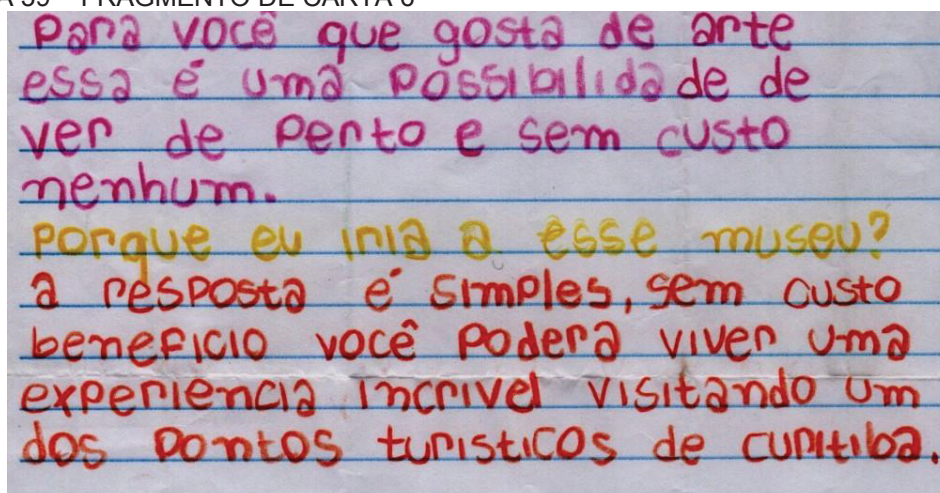 A 39 – FRAGMENTO DE CARTA 6
Para você que gosta de arte
essa é uma possibilidade de
ver de perto e sem custo
nenhum.
Porque eu iria a esse museu?
a resposta é simples, sem custo
beneficio você poderá viver uma
experiencia incrivel visitando um
dos pontos turisticos de curitiba.